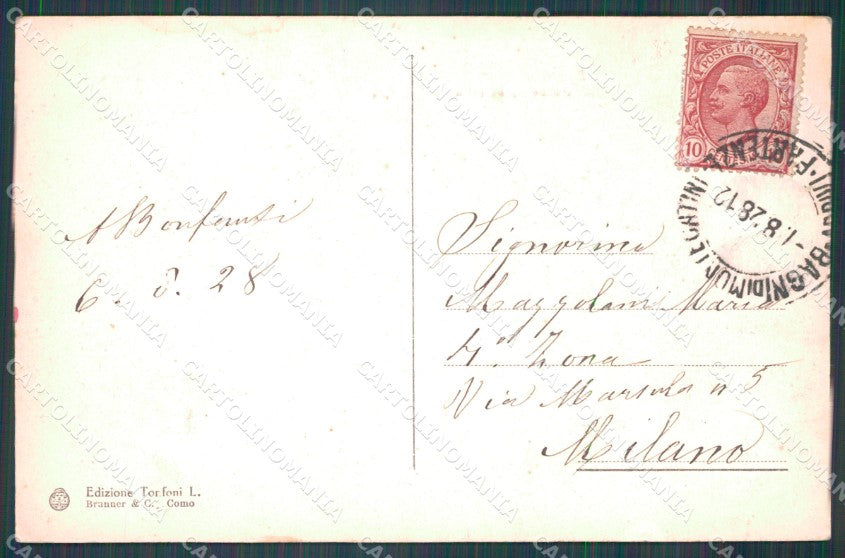 POSTE ITALIANE
10
PARTENZE
-1.8.28.12
BAGNI DI MU
A Bonferuti
6. 8. 28
Signorina
Mazzolani Maria
4ª Zona
Via Marsala n 5
Milano
Edizione Torfoni L.
Brunner & C. Como
CARTOLINOMANIA